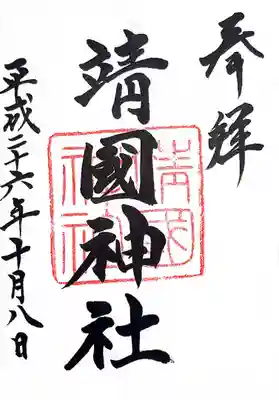 奉拝
靖國神社
靖國神社
平成二十六年十月八日